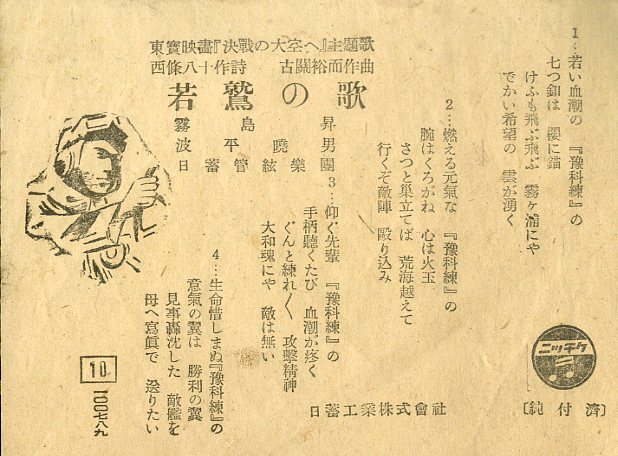 東寶映畫『決戰の大空へ』主題歌
西條八十作詩　古關裕而作曲
若鷲の歌
霧島昇
波平曉男
日蓄管絃樂團
1…若い血潮の　『豫科練』の
七つ釦は　櫻に錨
けふも飛ぶ飛ぶ　霧ヶ浦にや
でかい希望の　雲が湧く
2…燃える元氣な　『豫科練』の
腕はくろがね　心は火玉
さつと巣立てば　荒海越えて
行くぞ敵陣　毆り込み
3…仰ぐ先輩　『豫科練』の
手柄聽くたび　血潮が疼く
ぐんと練れ〳〵　攻擊精神
大和魂にや　敵は無い
4…生命惜しまぬ『豫科練』の
意氣の翼は　勝利の翼
見事轟沈した　敵艦を
母へ寫眞で　送りたい
10.
一〇〇七八九
ニッチク
日蓄工業株式會社
〔純付濟〕